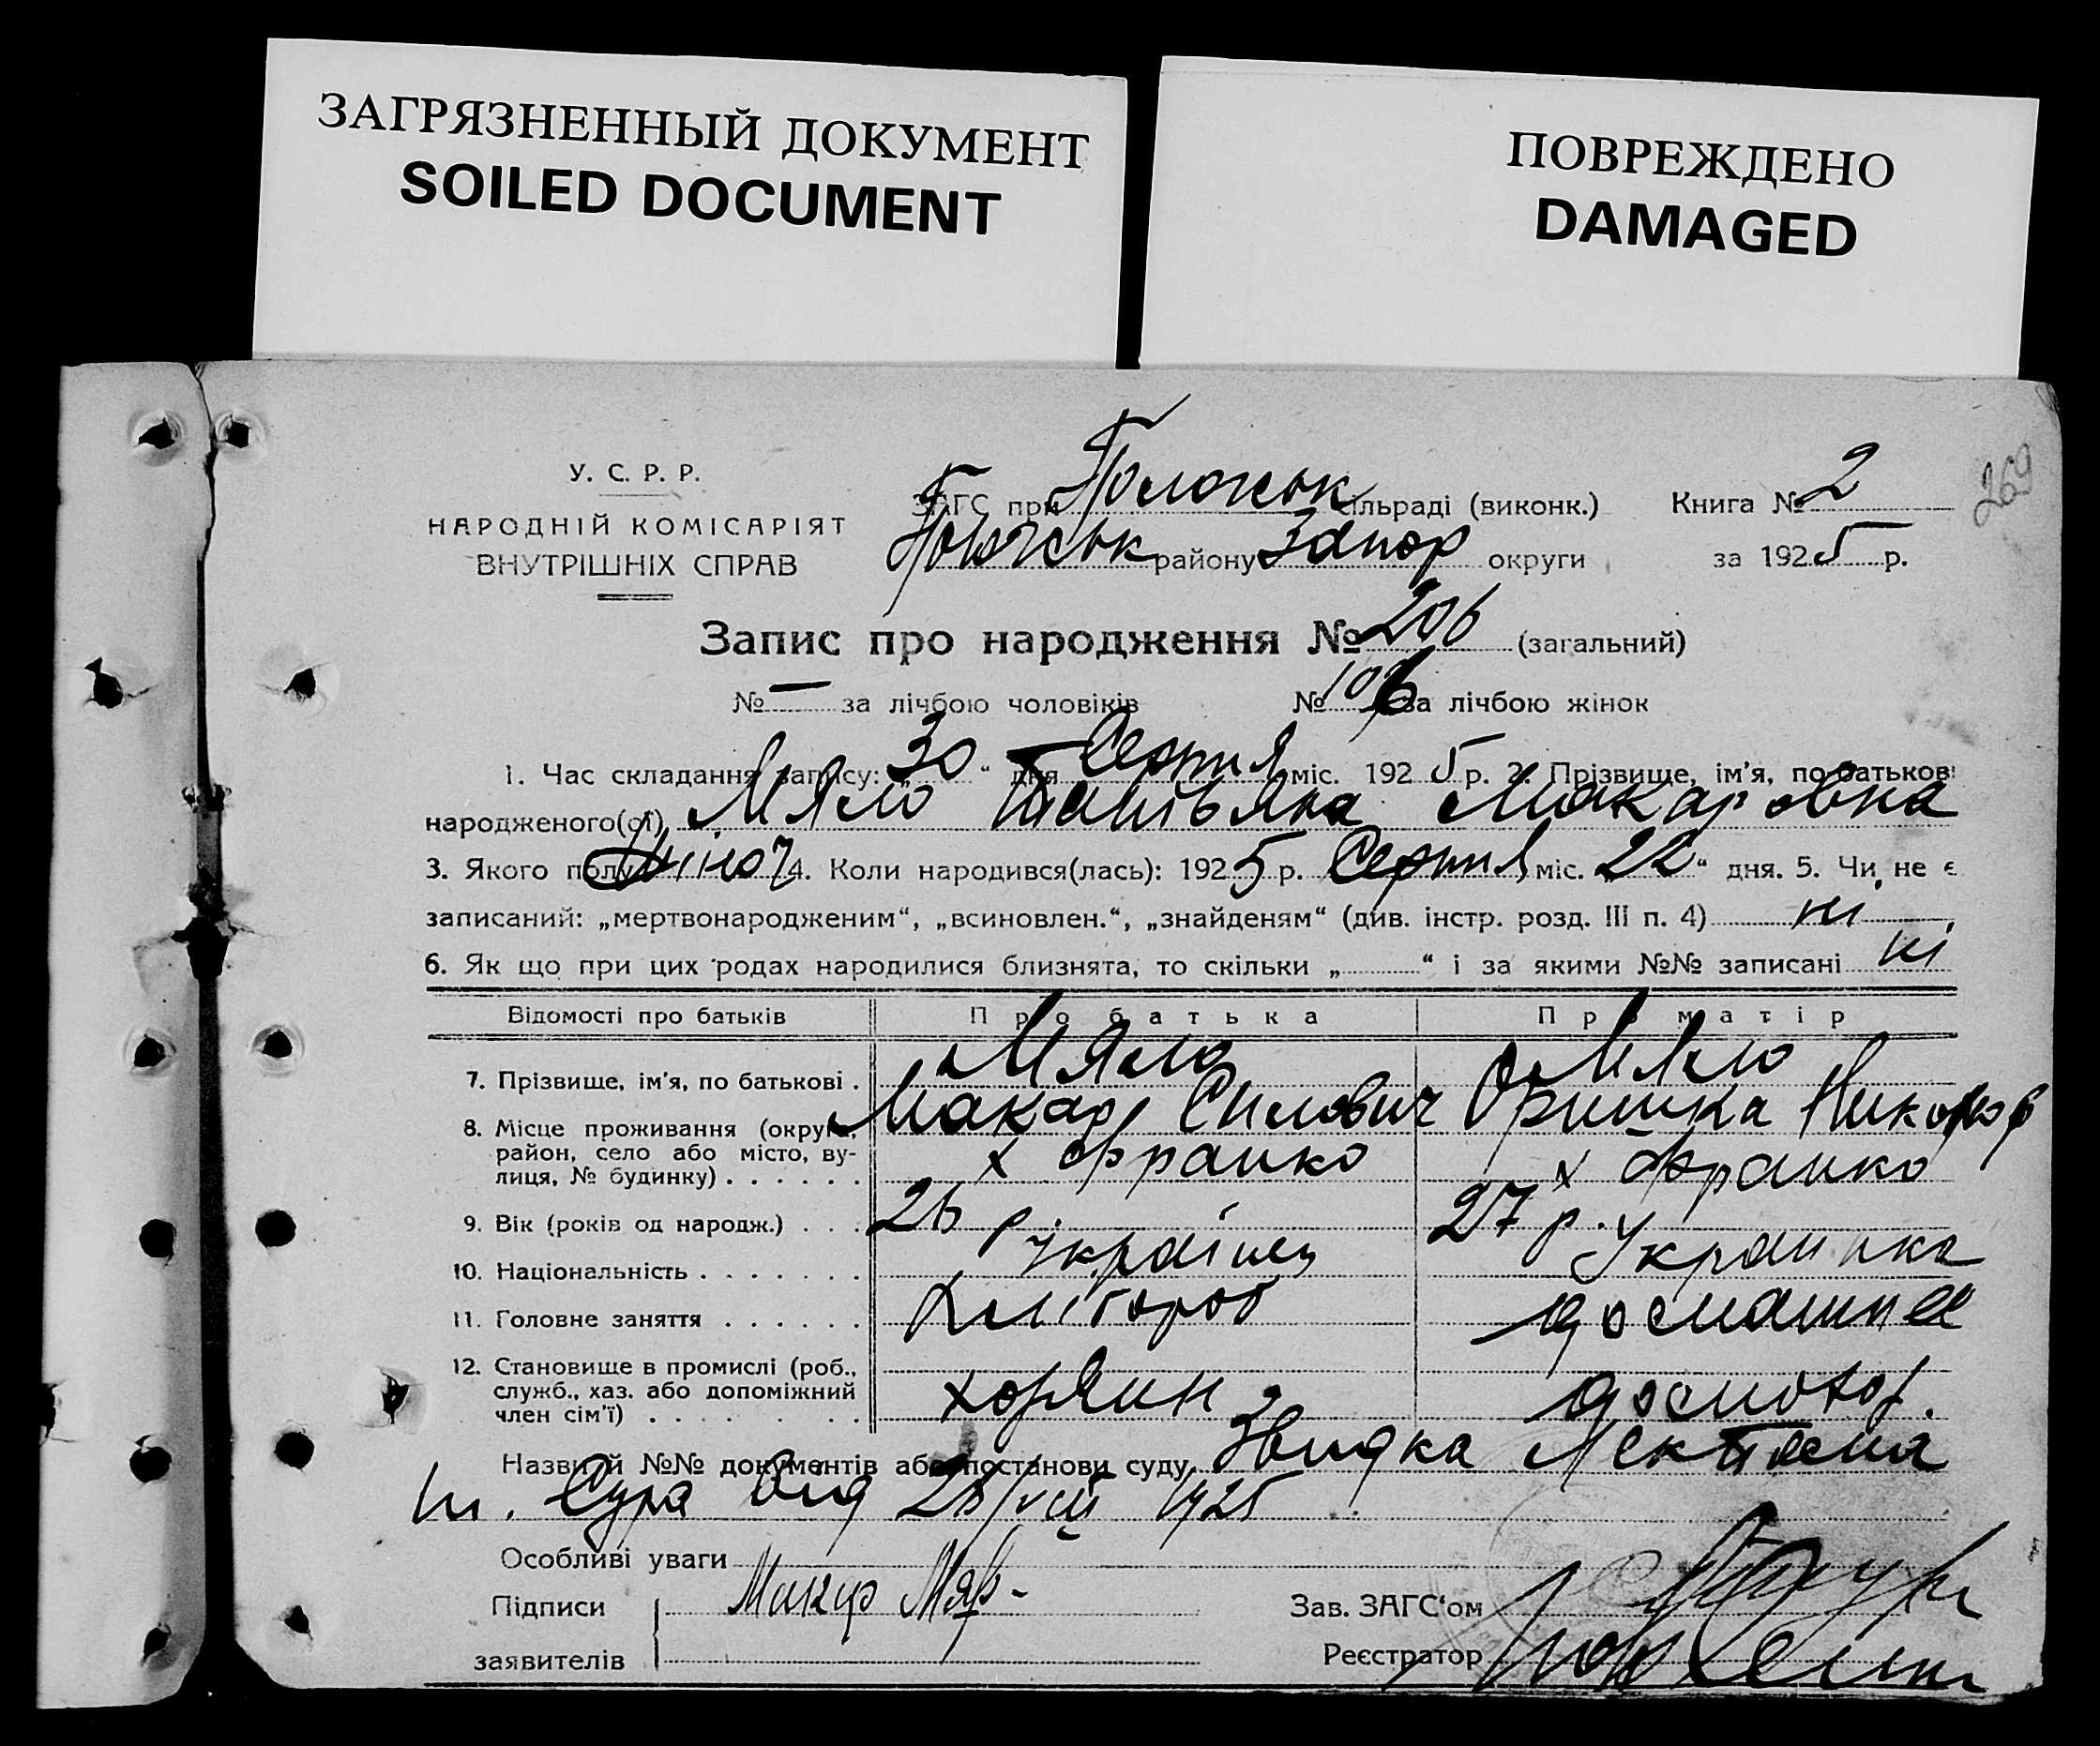 ЗАГРЯЗНЕННЫЙ ДОКУМЕНТ
SOILED DOCUMENT
ПОВРЕЖДЕНО
DAMAGED
269
У. С. Р. Р.
НАРОДНІЙ КОМІСАРІЯТ
ВНУТРІШНІХ СПРАВ
ЗАГС при Положськ сільраді (виконк.) Книга № 2
району Запор округи за 1925 р.
Запис про народження № 206 (загальний)
№ — за лічбою чоловіків № 106 за лічбою жінок
1. Час складання запису: 30 " дня Серпня міс. 1925 р. 2. Прізвище, ім'я, по батькові
народженого(ої) Мяло Татьяна Макаровна
3. Якого полу жіноч 4. Коли народився(лась): 1925 р. Серпня міс. „22" дня. 5. Чи не є
записаний: „мертвонародженим", „всиновлен.", „знайденям" (див. інстр. розд. III п. 4) ні
6. Як що при цих родах народилися близнята, то скільки „ " і за якими №№ записані ні
Відомості про батьків Про батька Про матір
7. Прізвище, ім'я, по батькові . Мяло Мяло
Макар Силович Оришка Никонор
8. Місце проживання (округа,
район, село або місто, ву-
лиця, № будинку) . . . . . . х Франко х Франко
9. Вік (років од народж.) . . . 26 р. 27 р.
10. Національність . . . . . . . українец Украинка
11. Головне заняття . . . . . . Хлібороб домашня
12. Становище в промислі (роб.,
служб., хаз. або допоміжний
член сім'ї) . . . . . . . . домогос.
Назви й №№ документів або постанови суду
від 28/VIII 1925
Особливі уваги
Підписи Макар Мял
заявителів
Зав. ЗАГС'ом
Реєстратор